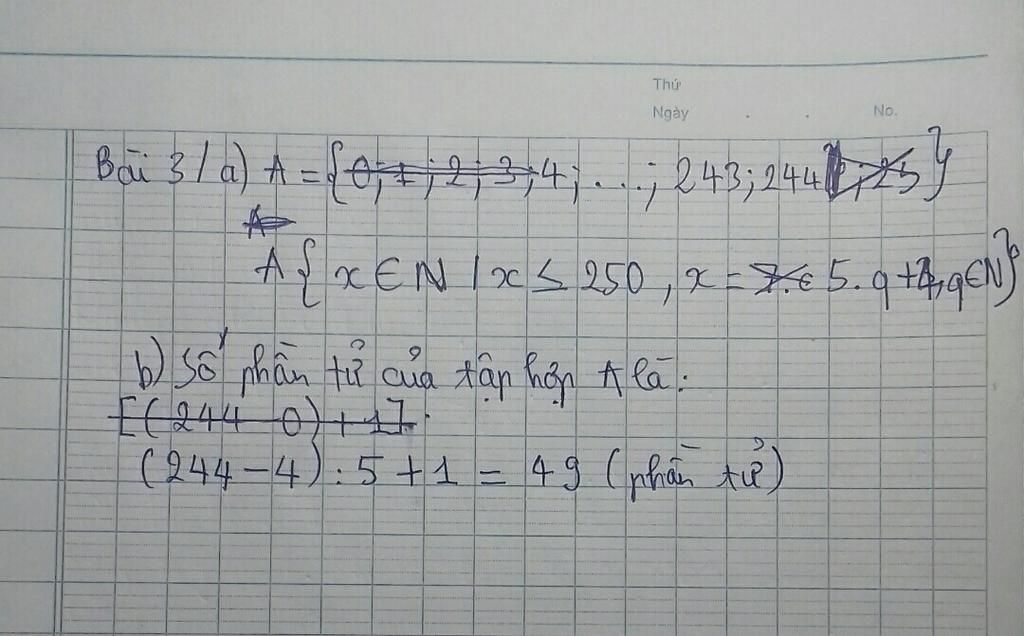 Thứ
Ngày . . No.
Bài 3/a) A = {0; 1; 2; 3; 4; ...; 243; 244; 25}
A =
A{x ∈ N / x ≤ 250, x = 5.q+4, q∈N}
b) Số phần tử của tập hợp A là:
[(244 - 0) + 1].
(244 - 4) : 5 + 1 = 49 (phần tử)